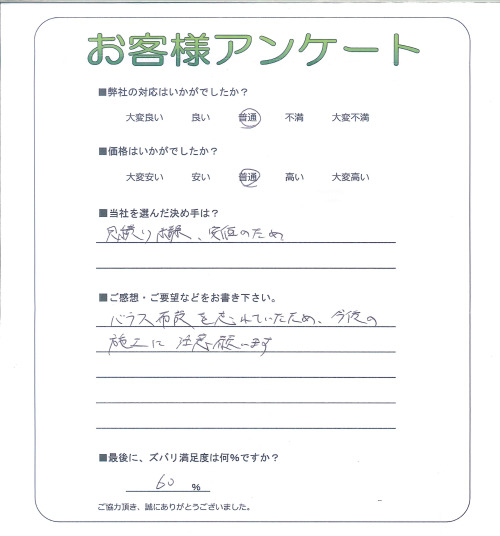 お客様アンケート
■弊社の対応はいかがでしたか？
大変良い 良い 普通 不満 大変不満
■価格はいかがでしたか？
大変安い 安い 普通 高い 大変高い
■当社を選んだ決め手は？
見積り、安価のため
■ご感想・ご要望などをお書き下さい。
バラス布設を忘れていたため、今後の
施工に注意願います
■最後に、ズバリ満足度は何%ですか？
60 %
ご協力頂き、誠にありがとうございました。